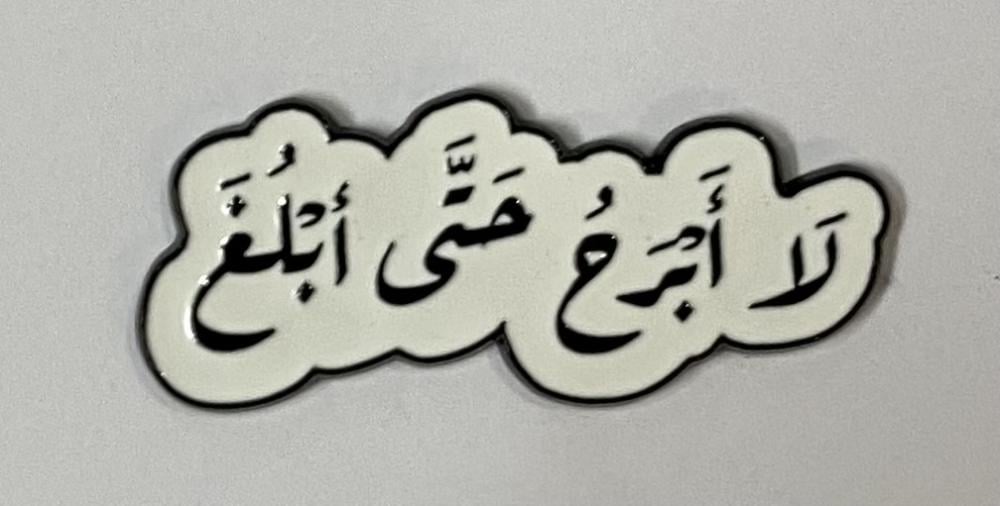 لَا أَبْرَحُ حَتَّى أَبْلُغَ